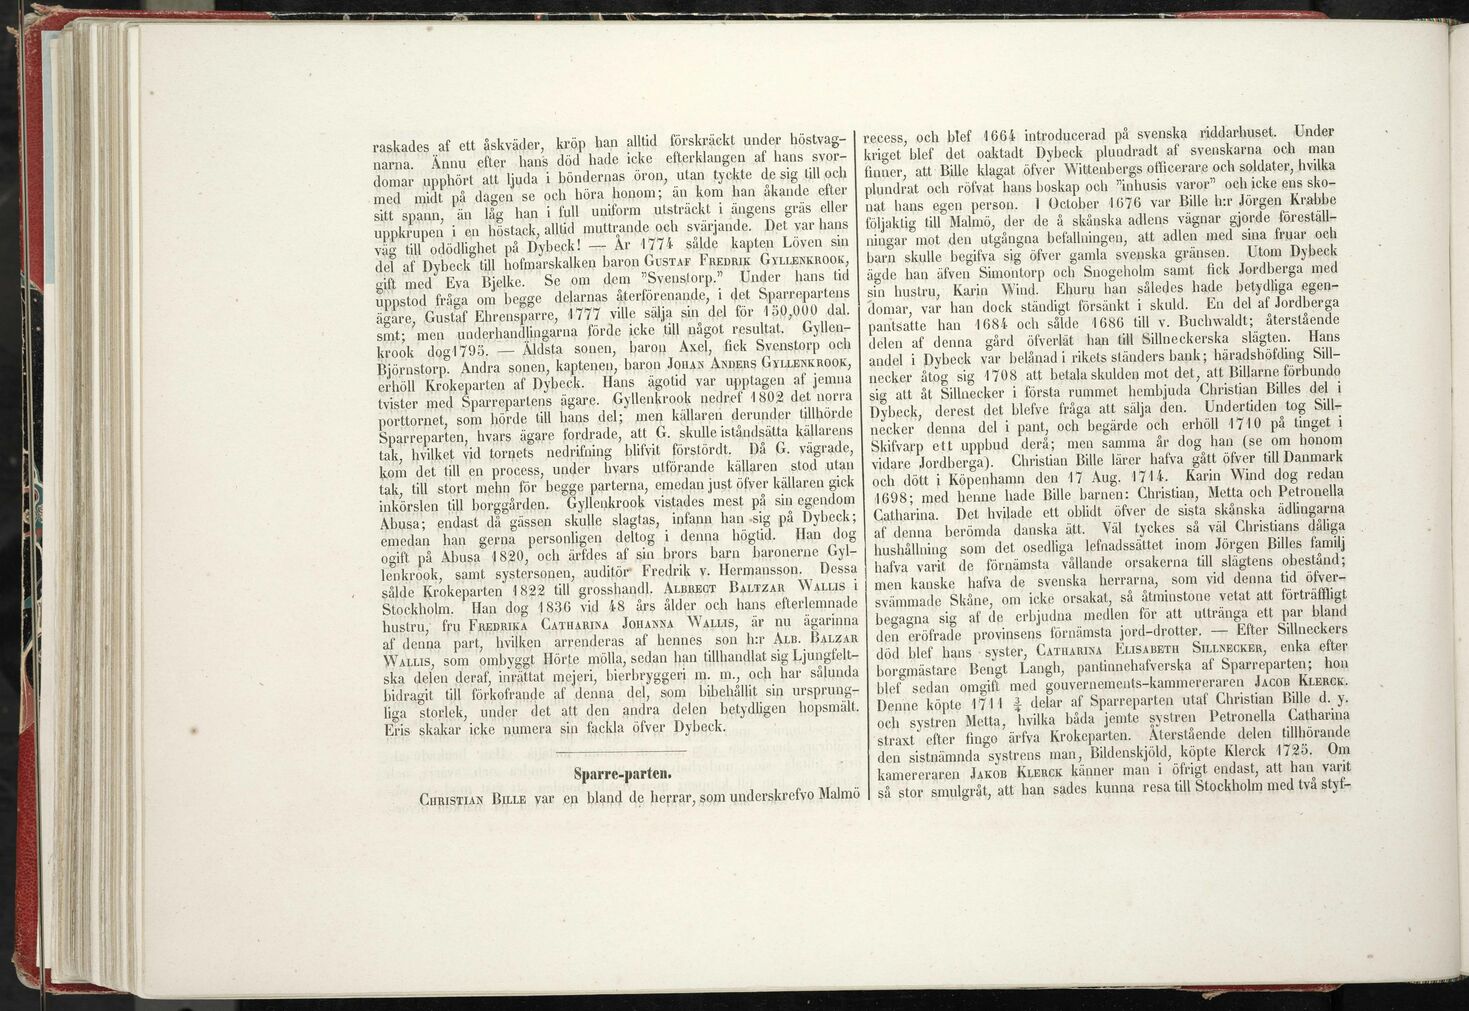 raskades af ett åskväder, kröp han alltid förskräckt under höstvag-
narna. Ännu efter hans död hade icke efterklangen af hans svor-
domar upphört att ljuda i böndernas öron, utan tyckte de sig till och
med midt på dagen se och höra honom; än kom han åkande efter
sitt spann, än låg han i full uniform utsträckt i ängens gräs eller
uppkrupen i en höstack, alltid muttrande och svärjande. Det var hans
väg till odödlighet på Dybeck! — År 1774 sålde kapten Löven sin
del af Dybeck till hofmarskalken baron GUSTAF FREDRIK GYLLENKROOK,
gift med Eva Bjelke. Se om dem "Svenstorp." Under hans tid
uppstod fråga om begge delarnas återförenande, i det Sparrepartens
ägare, Gustaf Ehrensparre, 1777 ville sälja sin del för 150,000 dal.
smt; men underhandlingarna förde icke till något resultat. Gyllen-
krook dog 1795. — Äldsta sonen, baron Axel, fick Svenstorp och
Björnstorp. Andra sonen, kaptenen, baron JOHAN ANDERS GYLLENKROOK,
erhöll Krokeparten af Dybeck. Hans ägotid var upptagen af jemna
tvister med Sparrepartens ägare. Gyllenkrook nedref 1802 det norra
porttornet, som hörde till hans del; men källaren derunder tillhörde
Sparreparten, hvars ägare fordrade, att G. skulle iståndsätta källarens
tak, hvilket vid tornets nedrifning blifvit förstördt. Då G. vägrade,
kom det till en process, under hvars utförande källaren stod utan
tak, till stort mehn för begge parterna, emedan just öfver källaren gick
inkörslen till borggården. Gyllenkrook vistades mest på sin egendom
Abusa; endast då gässen skulle slagtas, infann han sig på Dybeck;
emedan han gerna personligen deltog i denna högtid. Han dog
ogift på Abusa 1820, och ärfdes af sin brors barn baronerne Gyl-
lenkrook, samt systersonen, auditör Fredrik v. Hermansson. Dessa
sålde Krokeparten 1822 till grosshandl. ALBRECT BALTZAR WALLIS i
Stockholm. Han dog 1836 vid 48 års ålder och hans efterlemnade
hustru, fru FREDRIKA CATHARINA JOHANNA WALLIS, är nu ägarinna
af denna part, hvilken arrenderas af hennes son h:r ALB. BALZAR
WALLIS, som ombyggt Hörte mölla, sedan han tillhandlat sig Ljungfelt-
ska delen deraf, inrättat mejeri, bierbryggeri m. m., och har sålunda
bidragit till förkofrande af denna del, som bibehållit sin ursprung-
liga storlek, under det att den andra delen betydligen hopsmält.
Eris skakar icke numera sin fackla öfver Dybeck.
Sparre-parten.
CHRISTIAN BILLE var en bland de herrar, som underskrefvo Malmö
recess, och blef 1664 introducerad på svenska riddarhuset. Under
kriget blef det oaktadt Dybeck plundradt af svenskarna och man
finner, att Bille klagat öfver Wittenbergs officerare och soldater, hvilka
plundrat och röfvat hans boskap och "inhusis varor" och icke ens sko-
nat hans egen person. I October 1676 var Bille h:r Jörgen Krabbe
följaktig till Malmö, der de å skånska adlens vägnar gjorde föreställ-
ningar mot den utgångna befallningen, att adlen med sina fruar och
barn skulle begifva sig öfver gamla svenska gränsen. Utom Dybeck
ägde han äfven Simontorp och Snogeholm samt fick Jordberga med
sin hustru, Karin Wind. Ehuru han således hade betydliga egen-
domar, var han dock ständigt försänkt i skuld. En del af Jordberga
pantsatte han 1684 och sålde 1686 till v. Buchwaldt; återstående
delen af denna gård öfverlät han till Sillneckerska slägten. Hans
andel i Dybeck var belånad i rikets ständers bank; häradshöfding Sill-
necker åtog sig 1708 att betala skulden mot det, att Billarne förbundo
sig att åt Sillnecker i första rummet hembjuda Christian Billes del i
Dybeck, derest det blefve fråga att sälja den. Undertiden tog Sill-
necker denna del i pant, och begärde och erhöll 1710 på tinget i
Skifvarp ett uppbud derå; men samma år dog han (se om honom
vidare Jordberga). Christian Bille lärer hafva gått öfver till Danmark
och dött i Köpenhamn den 17 Aug. 1714. Karin Wind dog redan
1698; med henne hade Bille barnen: Christian, Metta och Petronella
Catharina. Det hvilade ett oblidt öfver de sista skånska ädlingarna
af denna berömda danska ätt. Väl tyckes så väl Christians dåliga
hushållning som det osedliga lefnadssättet inom Jörgen Billes familj
hafva varit de förnämsta vållande orsakerna till slägtens obestånd;
men kanske hafva de svenska herrarna, som vid denna tid öfver-
svämmade Skåne, om icke orsakat, så åtminstone vetat att förträffligt
begagna sig af de erbjudna medlen för att uttränga ett par bland
den eröfrade provinsens förnämsta jord-drotter. — Efter Sillneckers
död blef hans syster, CATHARINA ELISABETH SILLNECKER, enka efter
borgmästare Bengt Langh, pantinnehafverska af Sparreparten; hon
blef sedan omgift med gouvernements-kammereraren JACOB KLERCK.
Denne köpte 1711 ¾ delar af Sparreparten utaf Christian Bille d. y.
och systren Metta, hvilka båda jemte systren Petronella Catharina
straxt efter fingo ärfva Krokeparten. Återstående delen tillhörande
den sistnämnda systrens man, Bildenskjöld, köpte Klerck 1725. Om
kamereraren JAKOB KLERCK känner man i öfrigt endast, att han varit
så stor smulgråt, att han sades kunna resa till Stockholm med två styf-